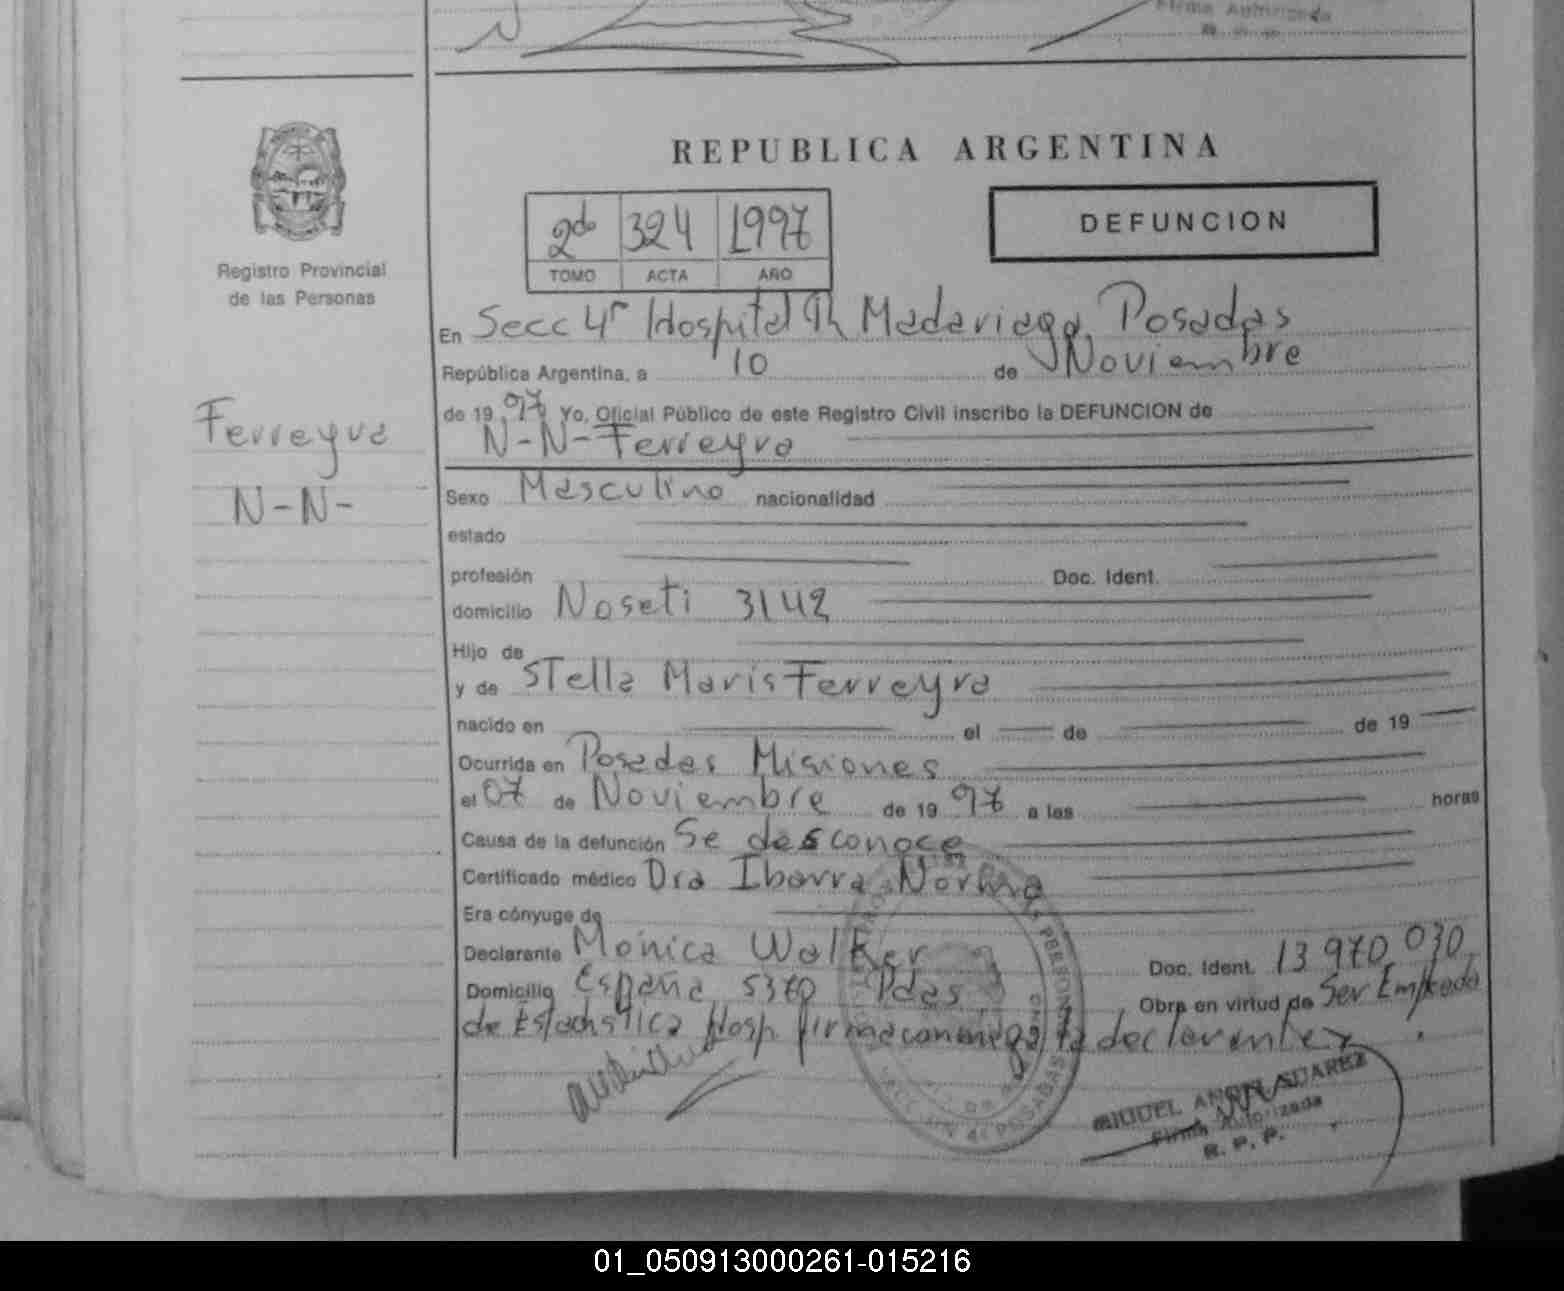 Firma Autorizada
REPUBLICA ARGENTINA
2do 324 1997
TOMO ACTA AÑO
DEFUNCION
Registro Provincial
de las Personas
Ferreyra
N-N-
En Secc 4ª Hospital Madariaga Posadas
República Argentina, a 10 de Noviembre
de 19 97 Yo, Oficial Público de este Registro Civil inscribo la DEFUNCION de
N-N-Ferreyra
Sexo Masculino nacionalidad
estado
profesión Doc. Ident.
domicilio Noseti 3142
Hijo de
y de Stella Maris Ferreyra
nacido en el de de 19
Ocurrida en Posadas Misiones
el 07 de Noviembre de 19 97 a las horas
Causa de la defunción Se desconoce
Certificado médico Dra Ibarra Norma
Era cónyuge de
Declarante Monica Walker Doc. Ident. 13970,030
Domicilio España 5370 Pdas Obra en virtud de Ser Empleada
de Estadistica Hosp firma conmigo la declarante
MIGUEL ANGEL SUAREZ
Firma Autorizada
R. P. P.
01_050913000261-015216